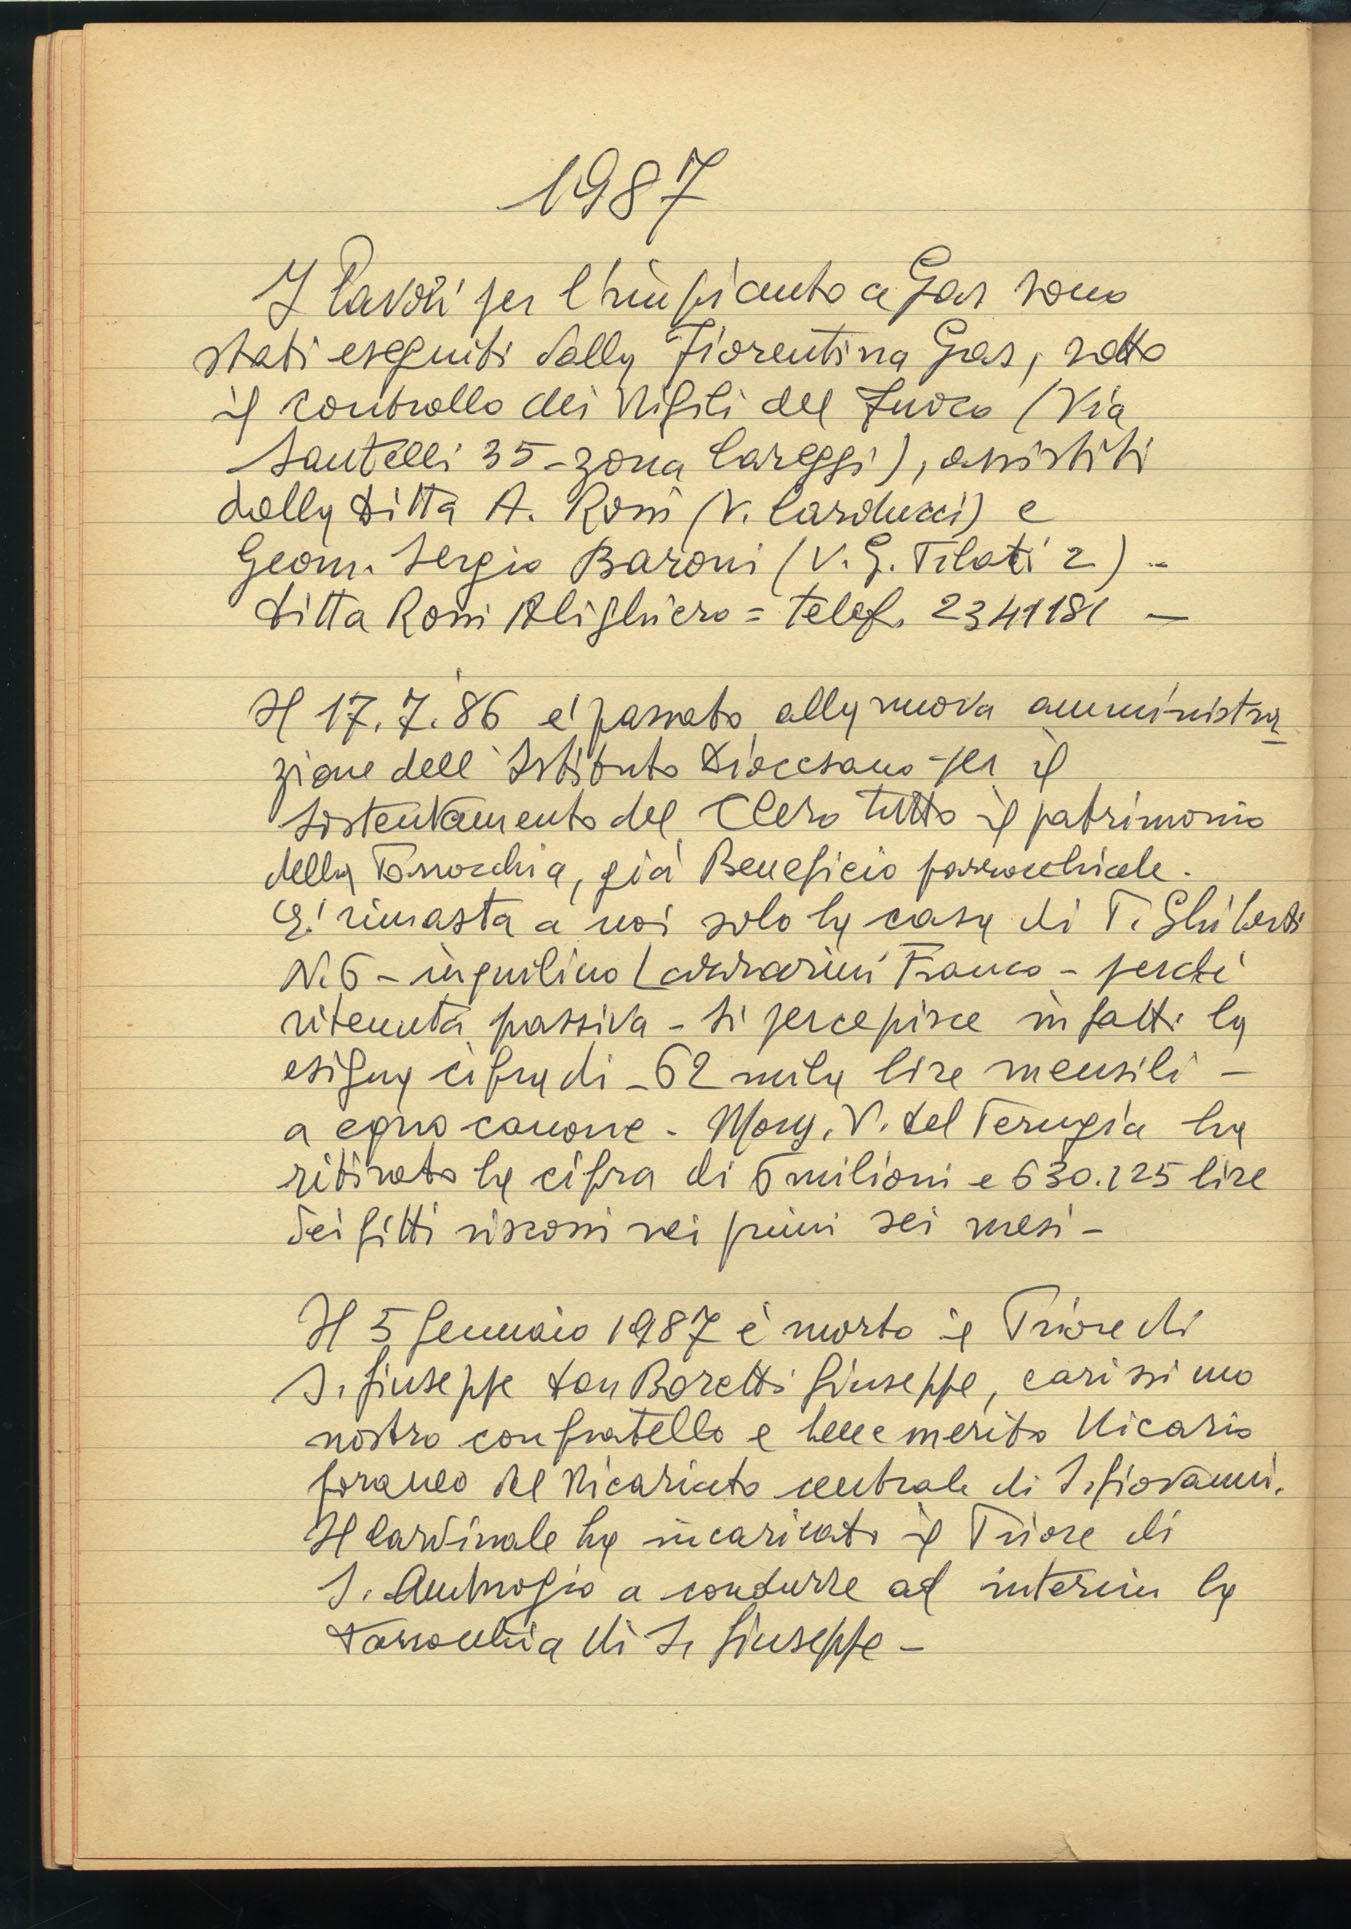 1987
I lavori per l'impianto a Gas sono
stati eseguiti dalla Fiorentina Gas, sotto
il controllo dei Vigili del Fuoco (Via
Santelli 35 - zona Careggi), assistiti
dalla Ditta A. Rossi (V. Carducci) e
Geom. Sergio Baroni (V. G. Pilati 2) -
Ditta Rossi Alighiero = telef. 2341181 -
Il 17.7.'86 è passato alla nuova amministra
zione dell'Istituto Diocesano per il
sostentamento del Clero tutto il patrimonio
della Parrocchia, già Beneficio parrocchiale.
E' rimasta a noi solo la casa di P. Ghiberti
N. 6 - inquilino Franco - perché
ritenuta passiva - si percepisce infatti la
esigua cifra di - 62 mila lire mensili -
a equo canone - Mons. V. Del Perugia ha
ritirato la cifra di 6 milioni e 630.125 lire
dei fitti riscossi nei primi sei mesi -
Il 5 Gennaio 1987 è morto il Priore di
S. Giuseppe don Baretti Giuseppe, carissimo
nostro confratello e benemerito Vicario
foraneo del Vicariato centrale di S. Giovanni.
Il Cardinale ha incaricato il Priore di
S. Ambrogio a condurre ad interim la
Parrocchia di S. Giuseppe -